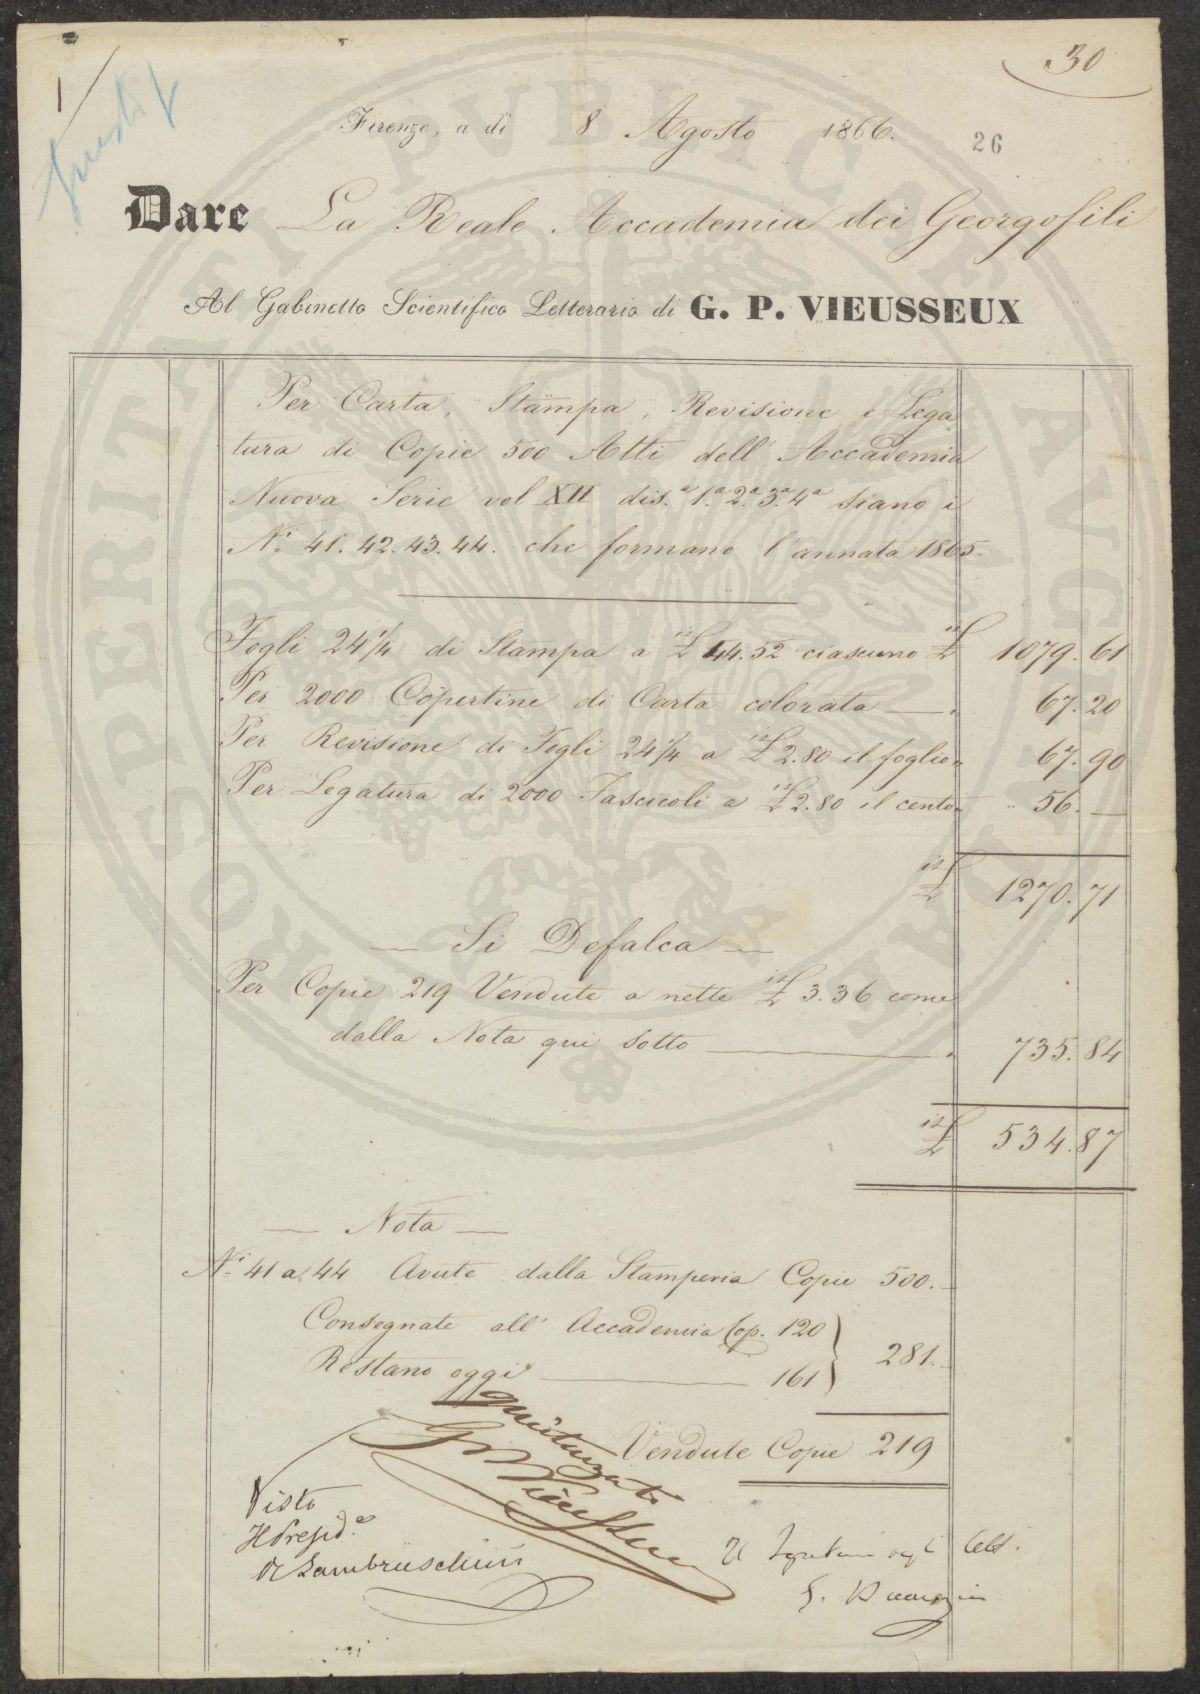 30
1
Firenze, a dì 8 Agosto 1866.
26
Dare La Reale Accademia dei Georgofili
Al Gabinetto Scientifico Letterario di G. P. VIEUSSEUX
Per Carta, Stampa, Revisione e Lega
tura di Copie 500 Atti dell' Accademia
Nuova Serie vol XII dis.ª 1.ª 2.ª 3.ª 4ª siano i
N.i 41. 42. 43. 44. che formano l'annata 1865.
Fogli 24 1/4 di Stampa a it£ 44.52 ciascuno it£ 1079.61
Per 2000 Copertine di Carta colorata — " 67.20
Per Revisione di Fogli 24 1/4 a it£ 2.80 il foglio " 67.90
Per Legatura di 2000 Fascicoli a it£ 2.80 il cento " 56.—
it£ 1270.71
— Si Defalca —
Per Copie 219 Vendute a nette it£ 3.36 come
dalla Nota qui sotto — " 735.84
it£ 534.87
— Nota —
N.i 41 a 44 Avute dalla Stamperia Copie 500.—
Consegnate all' Accademia Cop. 120
Restano oggi — 161 } 281.—
Vendute Copie 219
quietanzato
G P Vieusseux
Visto
Il Presid.e
R Lambruschini
Il Segretario degli Atti.
PROSPERITATI PVBLICAE AVGENDAE